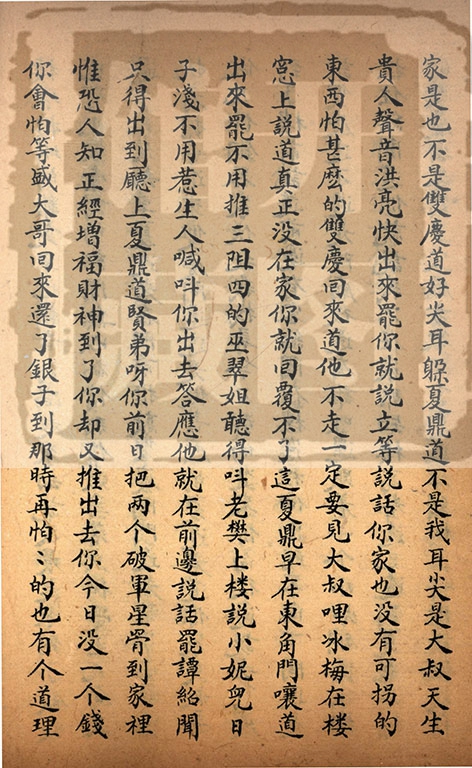 家是也不是雙慶道好尖耳躲夏鼎道不是我耳尖是大叔天生
貴人聲音洪亮快出來罷你就說立等說話你家也没有可拐的
東西怕甚麽的雙慶回來道他不走一定要見大叔哩冰梅在楼
窓上說道真正没在家你就回覆不了這夏鼎早在東角門嚷道
出來罷不用推三阻四的巫翠姐聽得呌老樊上楼說小妮兒日
子淺不用惹生人喊呌你出去答應他就在前邊說話罷譚紹聞
只得出到廳上夏鼎道賢弟呀你前日把两个破軍星胥到家裡
惟恐人知正經增福財神到了你却又推出去你今日没一个錢
你會怕等盛大哥回來還了銀子到那時再怕〻的也有个道理